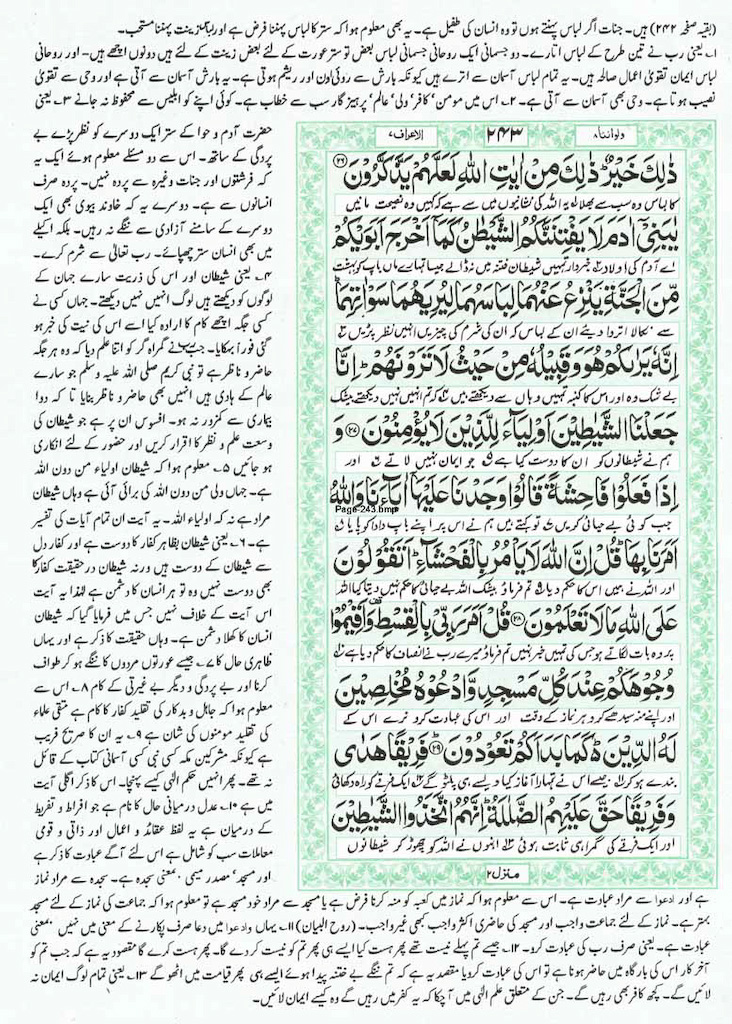 (بقیہ صفحہ ۲۴۲) ہیں۔ جنات اگر لباس پہنتے ہوں تو وہ انسان کی طفیل ہے۔ یہ بھی معلوم ہوا کہ ستر کا لباس پہننا فرض ہے اور لباس زینت پہننا مستحب۔
۱۔ یعنی رب نے تین طرح کے لباس اتارے۔ دو جسمانی ایک روحانی جسمانی لباس بعض تو ستر عورت کے لئے بعض زینت کے لئے ہیں دونوں اچھے ہیں۔ اور روحانی
لباس ایمان تقویٰ اعمال صالحہ ہیں۔ یہ تمام لباس آسمان سے اترے ہیں کیونکہ بارش سے روئی اون اور ریشم ہوتی ہے۔ یہ بارش آسمان سے آتی ہے اور وحی سے تقویٰ
نصیب ہوتا ہے۔ وحی بھی آسمان سے آتی ہے۔ ۲۔ اس میں مومن' کافر' ولی' عالم' پرہیز گار سب سے خطاب ہے۔ کوئی اپنے کو ابلیس سے محفوظ نہ جانے ۳۔ یعنی
ولواننا ۸
۲۴۳
الاعراف ۷
ذٰلِكَ خَيْرٌ ذٰلِكَ مِنْ اٰيٰتِ اللّٰهِ لَعَلَّهُمْ يَذَّكَّرُوْنَ ۲۶
کا لباس وہ سب سے بھلا یہ اللہ کی نشانیوں میں سے ہے کہ کہیں وہ نصیحت مانیں
يٰبَنِيْٓ اٰدَمَ لَا يَفْتِنَنَّكُمُ الشَّيْطٰنُ كَمَآ اَخْرَجَ اَبَوَيْكُمْ
اے آدم کی اولاد خبردار تمہیں شیطان فتنہ میں نہ ڈالے جیسا تمہارے ماں باپ کو بہشت
مِّنَ الْجَنَّةِ يَنْزِعُ عَنْهُمَا لِبَاسَهُمَا لِيُرِيَهُمَا سَوْاٰتِهِمَا
سے نکالا اتروا دیئے ان کے لباس کہ ان کی شرم کی چیزیں انہیں نظر پڑیں
اِنَّهٗ يَرٰىكُمْ هُوَ وَقَبِيْلُهٗ مِنْ حَيْثُ لَا تَرَوْنَهُمْ اِنَّا
بے شک وہ اور اس کا کنبہ تمہیں وہاں سے دیکھتے ہیں کہ تم انہیں نہیں دیکھتے بیشک
جَعَلْنَا الشَّيٰطِيْنَ اَوْلِيَآءَ لِلَّذِيْنَ لَا يُؤْمِنُوْنَ ۲۷ وَ
ہم نے شیطانوں کو ان کا دوست کیا ہے جو ایمان نہیں لاتے اور
اِذَا فَعَلُوْا فَاحِشَةً قَالُوْا وَجَدْنَا عَلَيْهَآ اٰبَآءَنَا وَاللّٰهُ
Page-243.bmp
جب کوئی بے حیائی کریں تو کہتے ہیں ہم نے اس پر اپنے باپ دادا کو پایا
اَمَرَنَا بِهَا قُلْ اِنَّ اللّٰهَ لَا يَاْمُرُ بِالْفَحْشَآءِ اَتَقُوْلُوْنَ
اور اللہ نے ہمیں اس کا حکم دیا تم فرماؤ بیشک اللہ بے حیائی کا حکم نہیں دیتا کیا اللہ
عَلَى اللّٰهِ مَا لَا تَعْلَمُوْنَ ۲۸ قُلْ اَمَرَ رَبِّيْ بِالْقِسْطِ وَاَقِيْمُوْا
پر وہ بات لگاتے ہو جس کی تمہیں خبر نہیں تم فرماؤ میرے رب نے انصاف کا حکم دیا ہے
وُجُوْهَكُمْ عِنْدَ كُلِّ مَسْجِدٍ وَّادْعُوْهُ مُخْلِصِيْنَ
اور اپنے منہ سیدھے کرو ہر نماز کے وقت اور اس کی عبادت کرو نرے اس کے
لَهُ الدِّيْنَ كَمَا بَدَاَكُمْ تَعُوْدُوْنَ ۲۹ فَرِيْقًا هَدٰى
بندے ہو کر جیسے اس نے تمہارا آغاز کیا ویسے ہی پلٹو گے ایک فرقے کو راہ دکھائی
وَفَرِيْقًا حَقَّ عَلَيْهِمُ الضَّلٰلَةُ اِنَّهُمُ اتَّخَذُوا الشَّيٰطِيْنَ
اور ایک فرقے کی گمراہی ثابت ہوئی انہوں نے اللہ کو چھوڑ کر شیطانوں
منزل ۲
حضرت آدم و حوا کے ستر ایک دوسرے کو نظر پڑے بے
پردگی کے ساتھ۔ اس سے دو مسئلے معلوم ہوئے ایک یہ
کہ فرشتوں اور جنات وغیرہ سے پردہ نہیں۔ پردہ صرف
انسانوں سے ہے۔ دوسرے یہ کہ خاوند بیوی بھی ایک
دوسرے کے سامنے آزادی سے ننگے نہ رہیں۔ بلکہ اکیلے
میں بھی انسان ستر چھپائے۔ رب تعالیٰ سے شرم کرے۔
۴۔ یعنی شیطان اور اس کی ذریت سارے جہان کے
لوگوں کو دیکھتے ہیں لوگ انہیں نہیں دیکھتے۔ جہاں کسی نے
کسی جگہ اچھے کام کا ارادہ کیا اسے اس کی نیت کی خبر ہو
گئی فوراً بہکایا۔ جب رب نے گمراہ گر کو اتنا علم دیا کہ وہ ہر جگہ
حاضر و ناظر ہے تو نبی کریم صلی اللہ علیہ وسلم جو سارے
عالم کے ہادی ہیں انہیں بھی حاضر و ناظر بنایا تا کہ دوا
بیماری سے کمزور نہ ہو۔ افسوس ان پر ہے جو شیطان کی
وسعت علم و نظر کا اقرار کریں اور حضور کے لئے انکاری
ہو جائیں ۵۔ معلوم ہوا کہ شیطان اولیاء من دون اللہ
ہے۔ جہاں ولی من دون اللہ کی برائی آئی ہے وہاں شیطان
مراد ہے نہ کہ اولیاء اللہ۔ یہ آیت ان تمام آیات کی تفسیر
ہے۔ ۶۔ یعنی شیطان بظاہر کفار کا دوست ہے اور کفار دل
سے شیطان کے دوست ہیں ورنہ شیطان در حقیقت کفار کا
بھی دوست نہیں وہ تو ہر انسان کا دشمن ہے لہٰذا یہ آیت
اس آیت کے خلاف نہیں جس میں فرمایا گیا کہ شیطان
انسان کا کھلا دشمن ہے۔ وہاں حقیقت کا ذکر ہے اور یہاں
ظاہری حال کا ۷۔ جیسے عورتوں مردوں کا ننگے ہو کر طواف
کرنا اور بے پردگی و دیگر بے غیرتی کے کام ۸۔ اس سے
معلوم ہوا کہ جاہل و بدکار کی تقلید کفار کا کام ہے متقی علماء
کی تقلید مومنوں کی شان ہے ۹۔ یہ ان کا صریح فریب
ہے کیونکہ مشرکین مکہ کسی نبی کسی آسمانی کتاب کے قائل
نہ تھے۔ پھر انہیں حکم الٰہی کیسے پہنچا۔ اس کا ذکر اگلی آیت
میں ہے ۱۰۔ عدل درمیانی حال کا نام ہے جو افراط و تفریط
کے درمیان ہے یہ لفظ عقائد و اعمال اور ذاتی و قومی
معاملات سب کو شامل ہے اس لئے آگے عبادت کا ذکر ہے
اور مسجد' مصدر میمی۔ بمعنی سجدہ ہے۔ سجدہ سے مراد نماز
ہے اور ادعوا سے مراد عبادت ہے۔ اس سے معلوم ہوا کہ نماز میں کعبہ کو منہ کرنا فرض ہے یا مسجد سے مراد خود مسجد ہے تو معلوم ہوا کہ جماعت کی نماز کے لئے مسجد
بہتر ہے۔ نماز کے لئے جماعت واجب اور مسجد کی حاضری اکثر واجب کبھی غیر واجب۔ (روح البیان) ۱۱۔ یہاں وادعوا میں دعا صرف پکارنے کے معنی میں نہیں بمعنی
عبادت ہے۔ یعنی صرف رب کی عبادت کرو۔ ۱۲۔ جیسے تم پہلے نیست تھے پھر ہست کیا ایسے ہی پھر تم کو نیست کر دے گا۔ پھر ہست کرے گا مقصود یہ ہے کہ جب تم کو
آخر کار اس کی بارگاہ میں حاضر ہونا ہے تو اس کی عبادت کرو یا مقصد یہ ہے کہ تم ننگے بے ختنہ پیدا ہوئے ایسے ہی پھر قیامت میں اٹھو گے ۱۳۔ یعنی تمام لوگ ایمان نہ
لائیں گے۔ کچھ کافر بھی رہیں گے۔ جن کے متعلق علم الٰہی میں آ چکا کہ یہ کفر میں رہیں گے وہ کیسے ایمان لائیں۔